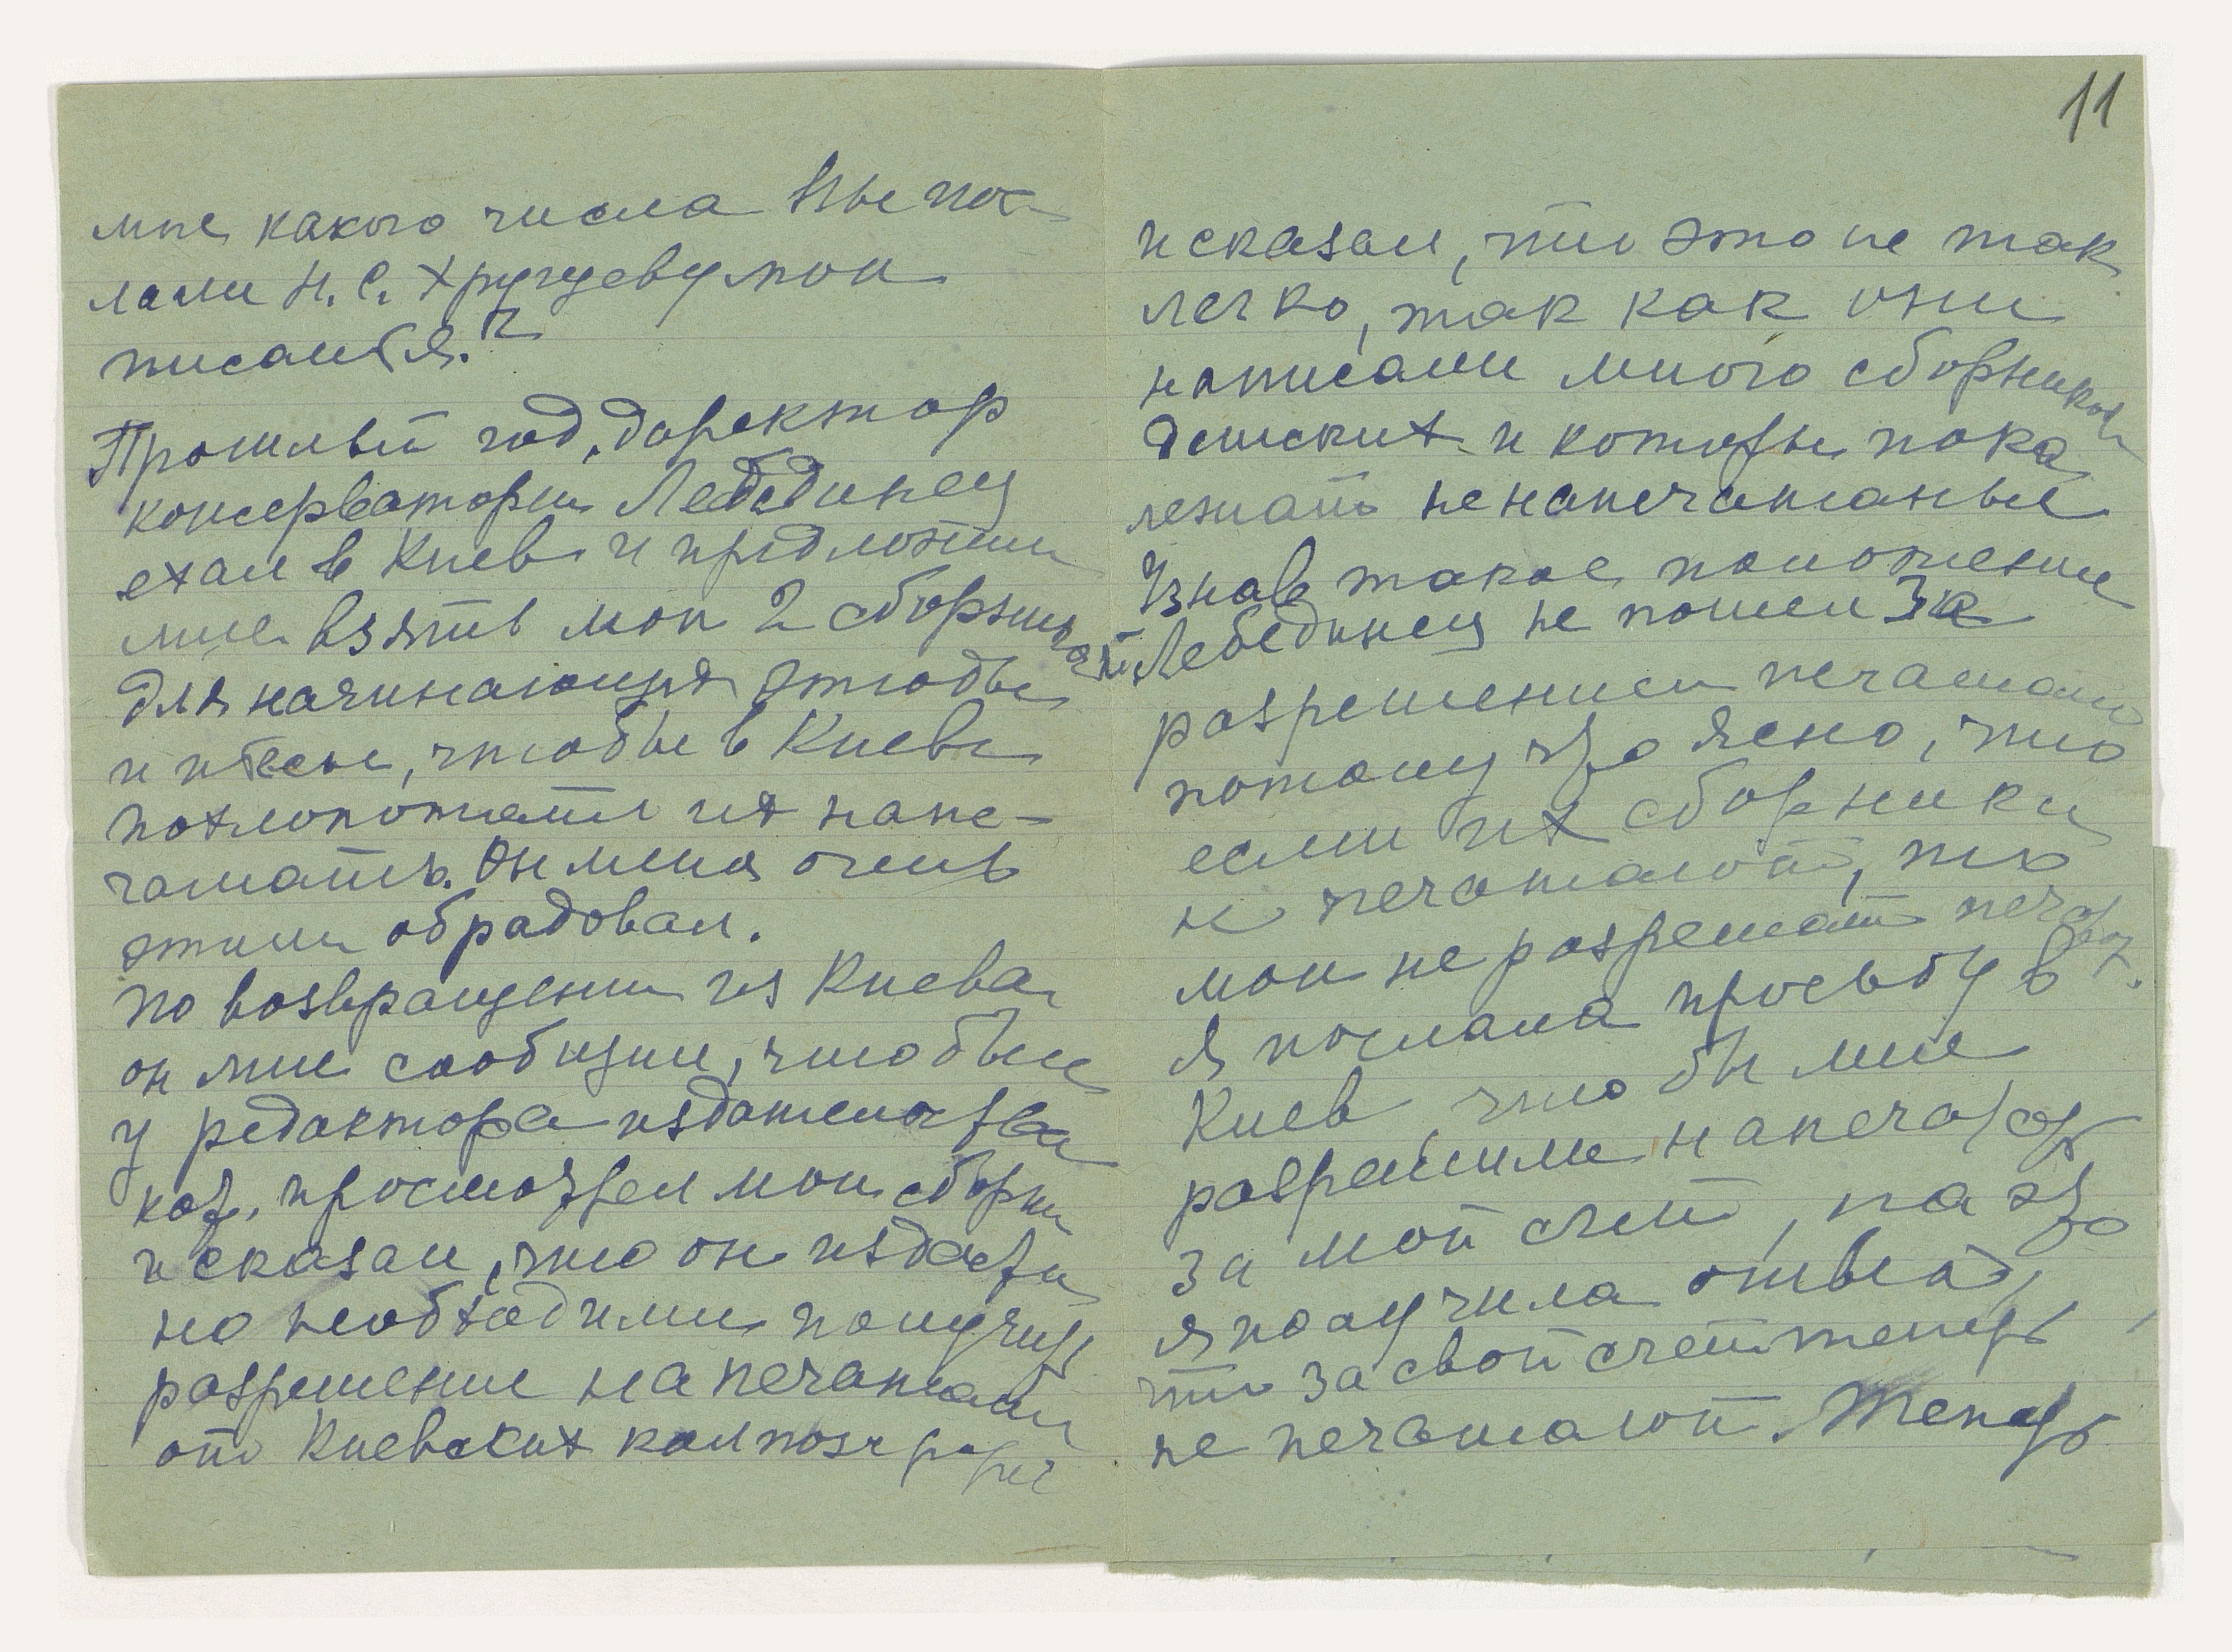 мне какого числа Вы пос-
лали Н. С. Хрущеву мои
писания."
Прошлый год, директор
консерватории Лебединец
ехал в Киев и предложил
мне взять мои 2 сборника
для начинающих этюды
и пьесы, чтобы в Киеве
похлопотать их напе-
чатать. Он меня очень
этим обрадовал.
По возвращении из Киева
он мне сообщил, что был
у редактора издательства
кот. просмотрел мои сборни
и сказал, что он издаст,
но необходимо получить
разрешение на печатание
от Киевских композиторов
11
и сказал, что это не так
легко, так как они
написали много сборников
детских и которы пока
лежать ненапечатанные
Узнав такое положение
Лебединец не пошел за
разрешением печатать
потому что ясно, что
если их сборники
не печатают, то
мои не разрешат печатат.
Я послала просьбу в
Киев, что бы мне
разрешили напечатать
за мой счет, на это
я получила ответ,
что за свой счет теперь
не печатают. Теперь